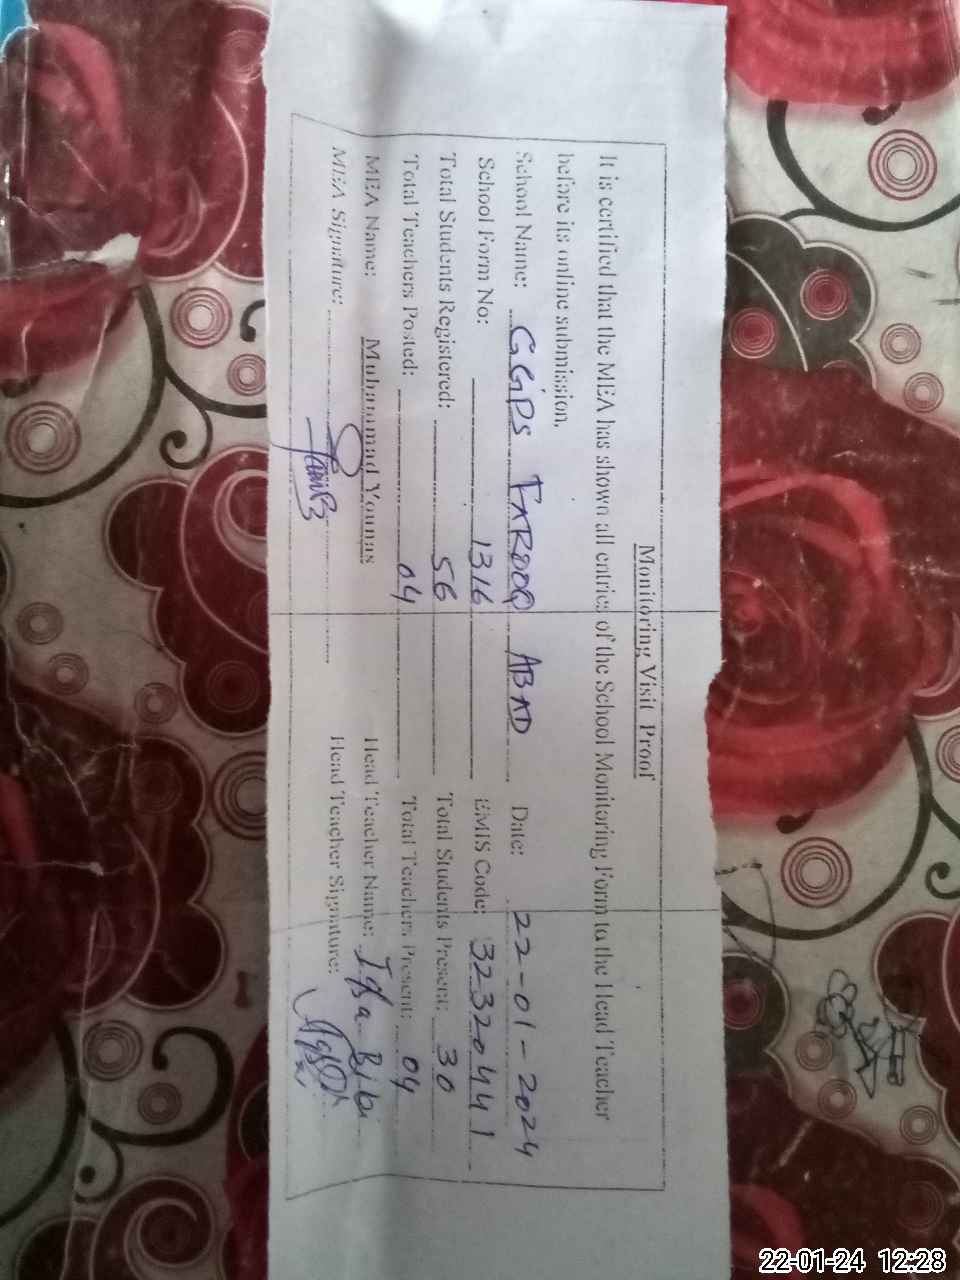 Monitoring Visit Proof
It is certified that the MEA has shown all entries of the School Monitoring Form to the Head Teacher
before its online submission.
School Name: GGPS FAROOQ ABAD Date: 22-01-2024
School Form No: 1316 EMIS Code: 32320441
Total Students Registered: 56 Total Students Present: 30
Total Teachers Posted: 04 Total Teachers Present: 04
MEA Name: Muhammad Younas Head Teacher Name: Iqsa Bibi
MEA Signature: Head Teacher Signature:
22-01-24 12:28